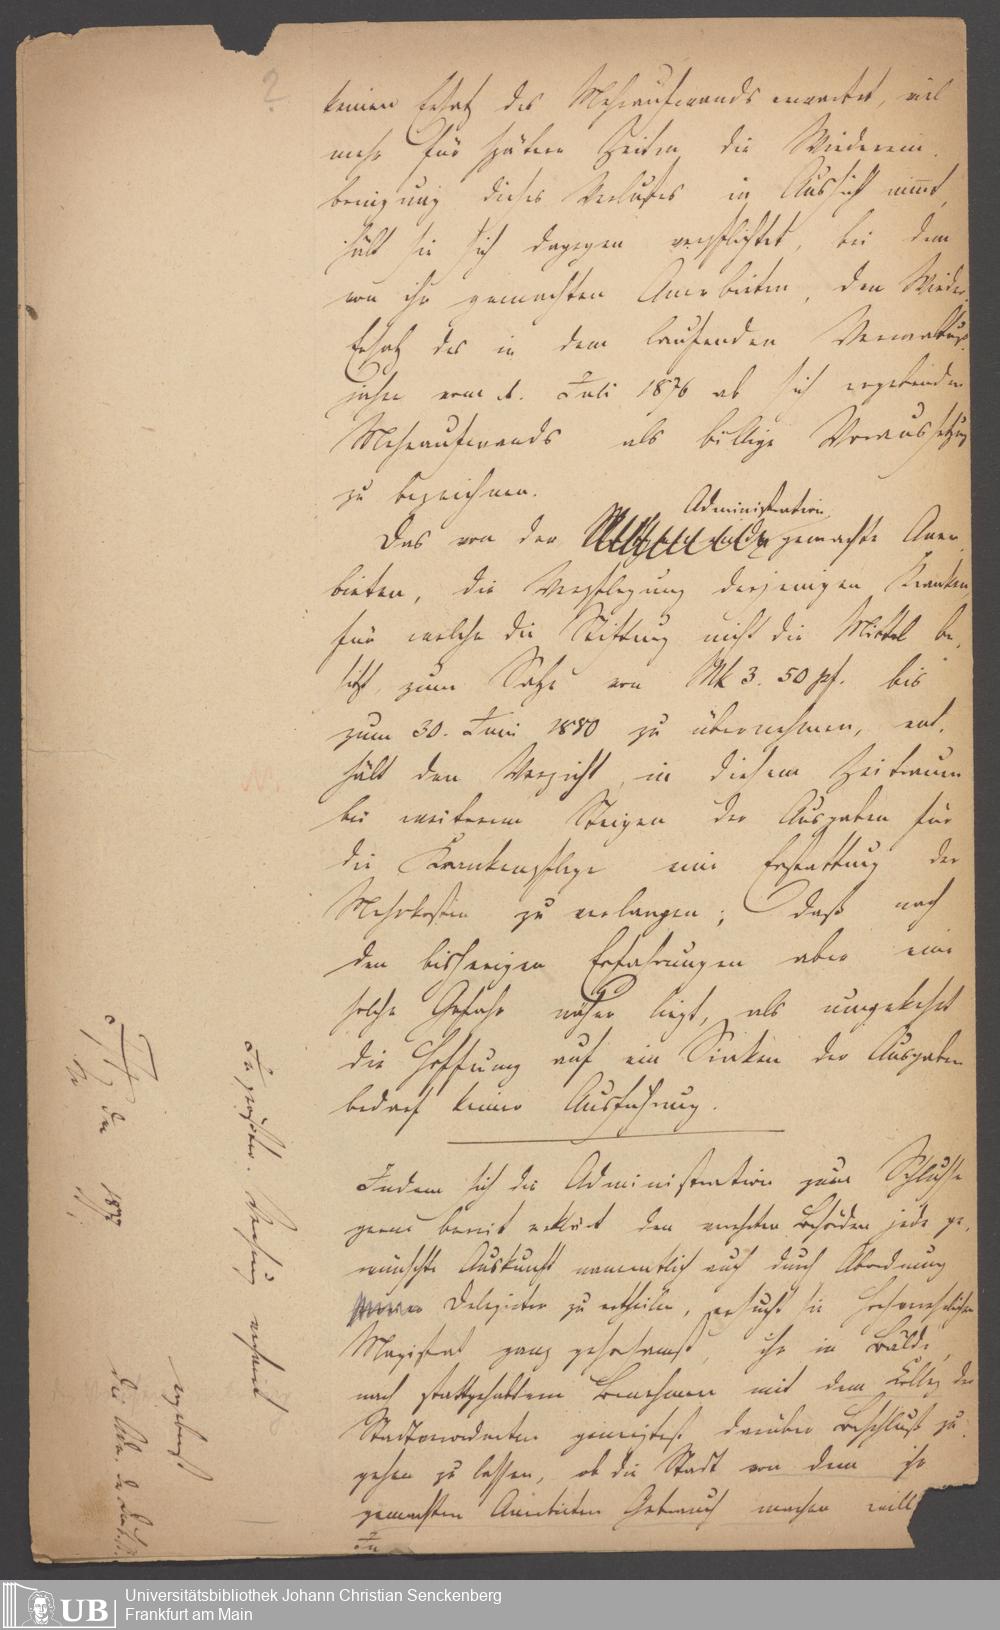 2
keinen Ersatz des Mehraufwands erwartet, viel
mehr für spätere Zeiten die Wiederein-
bringung dieses Verlustes in Aussicht nimmt,
hält sie sich dagegen verpflichtet, bei dem
von ihr gemachten Anerbieten, den Wieder-
Ersatz des in dem laufenden Verwaltungs-
jahre vom 1. Juli 1876 ab sich ergebenden
Mehraufwands als billige Voraussetzung
zu bezeichnen.
Administration
Das von der gemachte Aner-
bieten, die Verpflegung derjenigen Kranken,
für welche die Stiftung nicht die Mittel be-
sitzt, zum Satze von Mk 3. 50 pf. bis
zum 30. Juni 1880 zu übernehmen, ent-
hält den Verzicht, in diesem Zeitraum
bei weiterem Steigen der Ausgaben für
die Krankenpflege eine Erstattung der
Mehrkosten zu verlangen; daß nach
den bisherigen Erfahrungen aber eine
solche Gefahr näher liegt, als umgekehrt
die Hoffnung auf ein Sinken der Ausgaben
bedarf keiner Ausführung.
Indem sich die Administration zum Schlusse
gerne bereit erklärt den verehrten Behörden jede ge-
wünschte Auskunft namentlich auch durch Abordnung
Delegirter zu ertheilen, ersucht sie
Magistrat ganz gehorsamst, ihr in Bälde,
nach stattgehabtem Benehmen mit dem Colleg der
Stadtverordneten geneigtest darüber Beschluß zu-
gehen zu lassen, ob die Stadt von dem ihr
gemachten Anerbieten Gebrauch machen will
In
den 187
ergebenst
Die Adm.
Universitätsbibliothek Johann Christian Senckenberg
Frankfurt am Main
UB